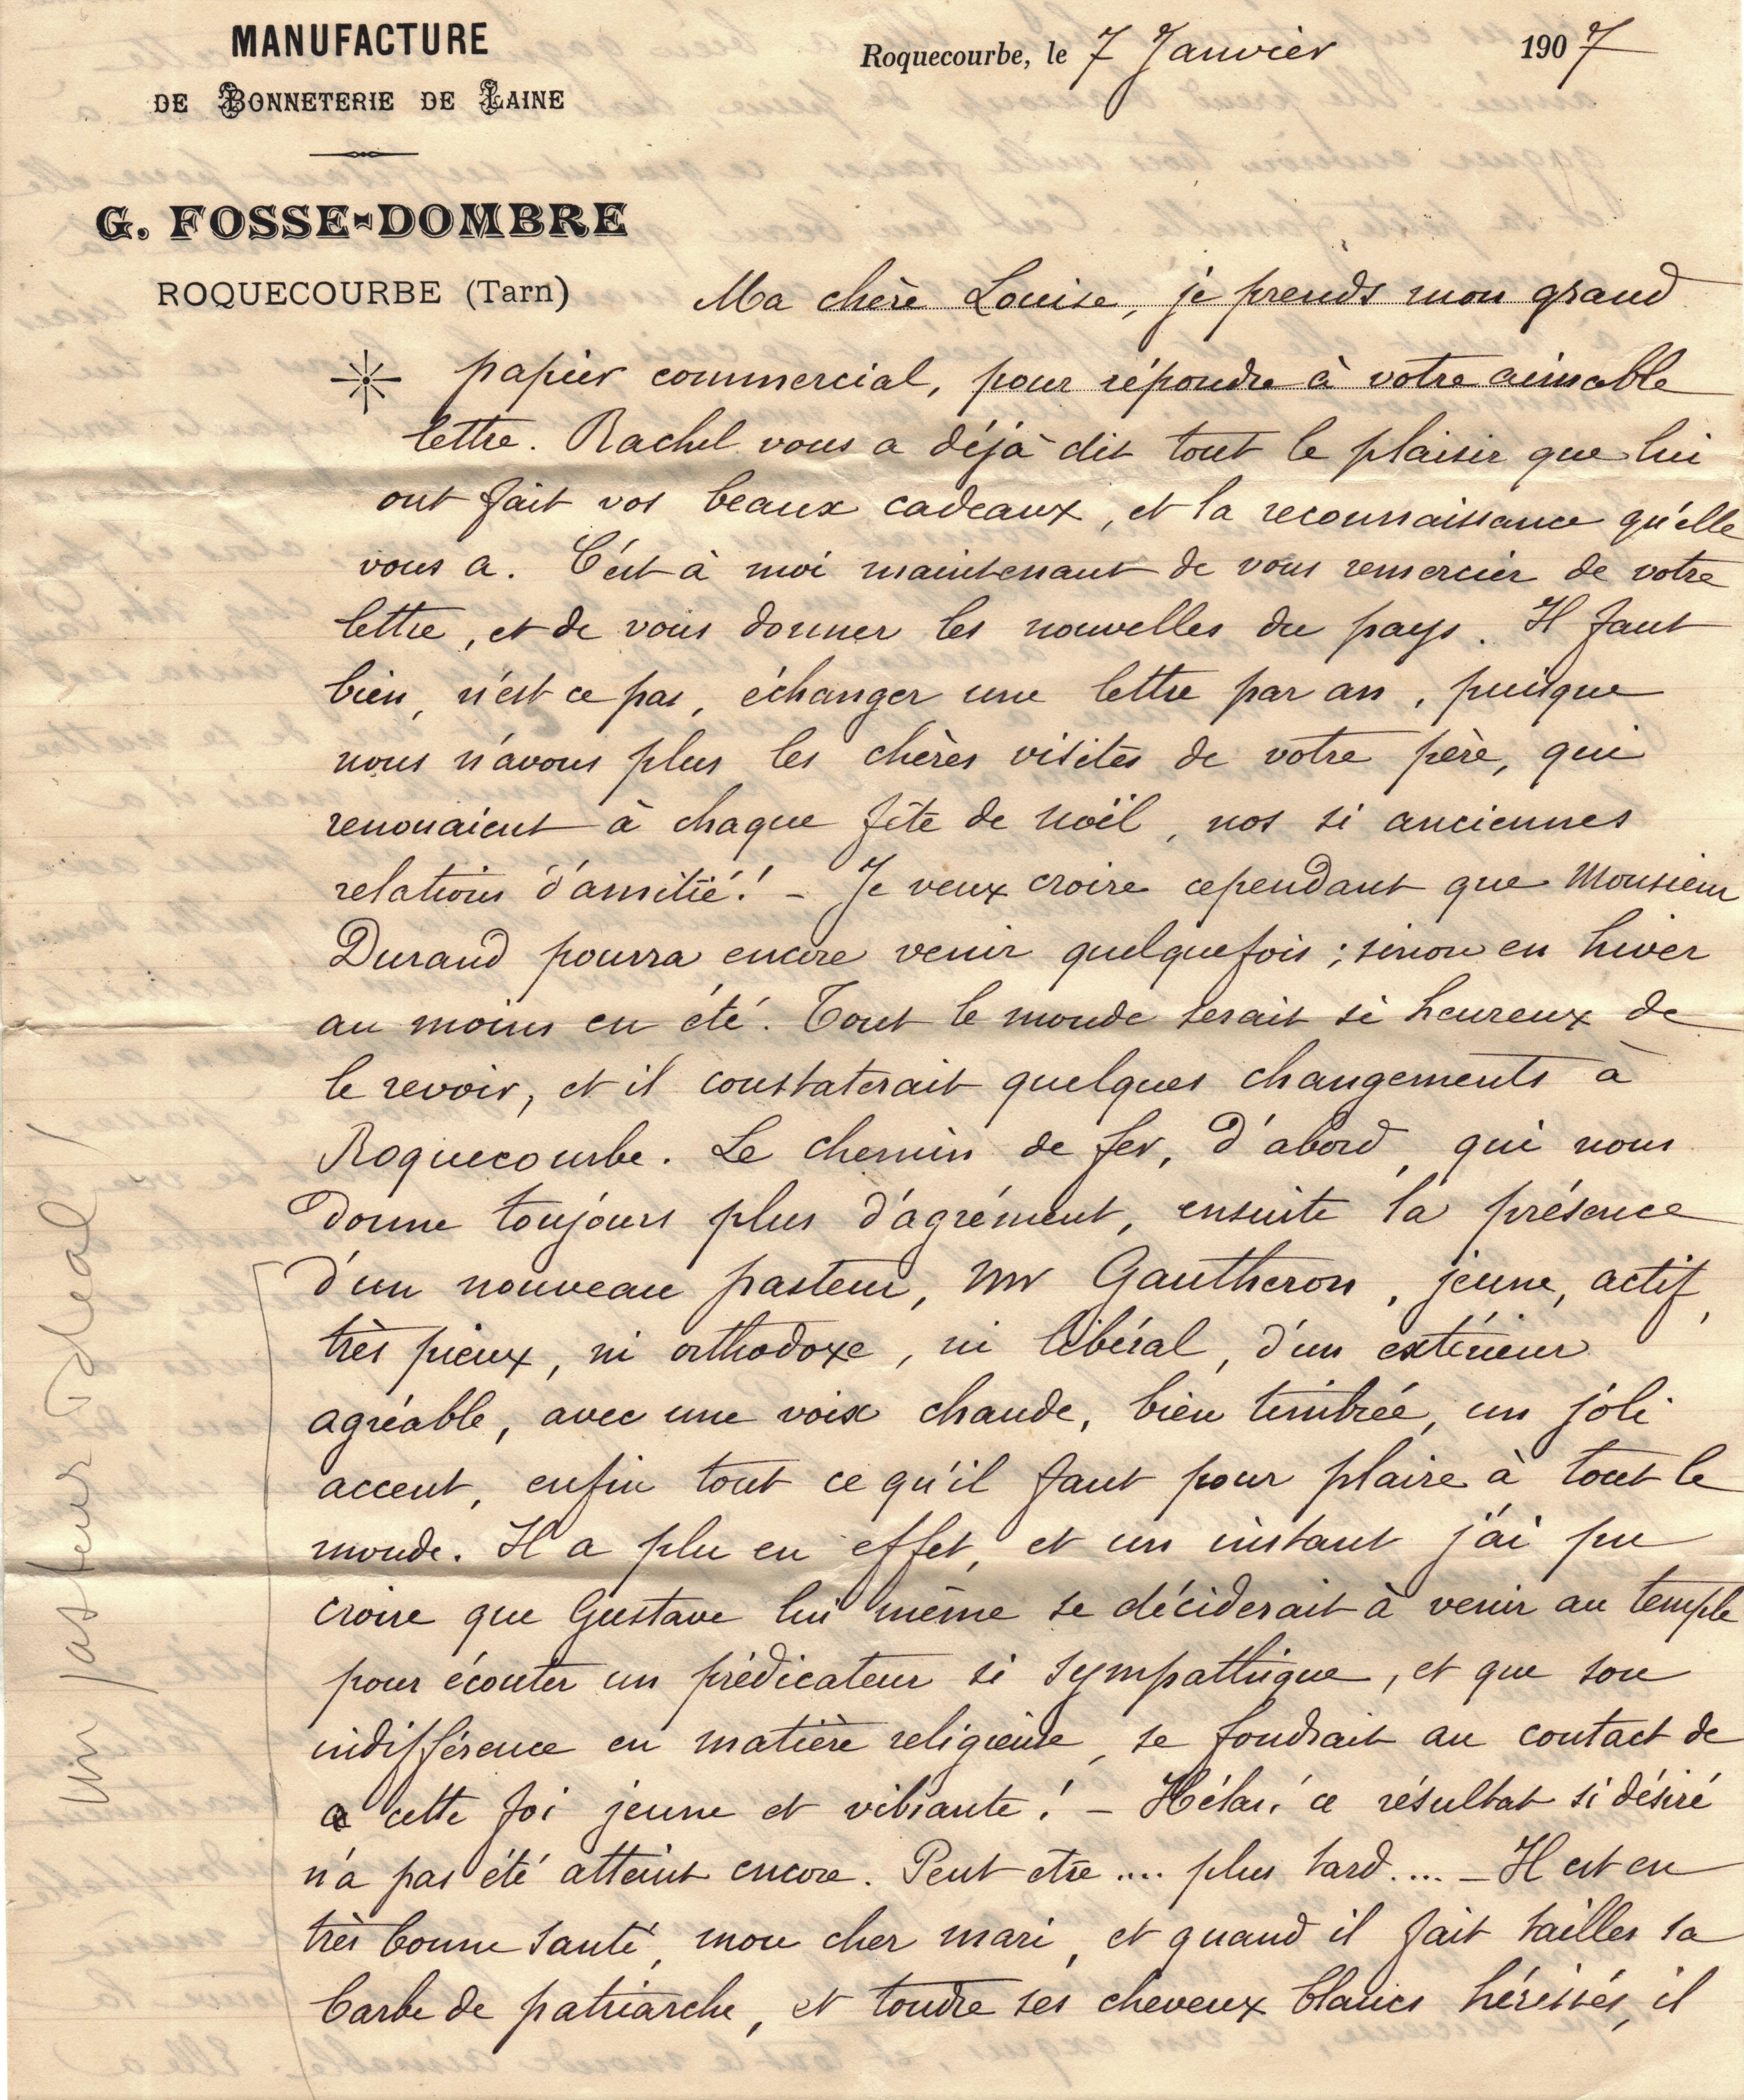 MANUFACTURE
DE BONNETERIE DE LAINE
G. FOSSE-DOMBRE
ROQUECOURBE (Tarn)
Roquecourbe, le 7 Janvier 1907
Ma chère Louise, je prends mon grand
papier commercial, pour répondre à votre aimable
lettre. Rachel vous a déjà dit tout le plaisir que lui
ont fait vos beaux cadeaux, et la reconnaissance qu'elle
vous a. C'est à moi maintenant de vous remercier de votre
lettre, et de vous donner les nouvelles du pays. Il faut
bien, n'est ce pas, échanger une lettre par an, puisque
nous n'avons plus les chères visites de votre père, qui
renouaient à chaque fête de Noël, nos si anciennes
relations d'amitié! - Je veux croire cependant que Monsieur
Durand pourra encore venir quelquefois; sinon en hiver
au moins en été. Tout le monde serait si heureux de
le revoir, et il constaterait quelques changements à
Roquecourbe. Le chemin de fer, d'abord, qui nous
donne toujours plus d'agrément, ensuite la présence
d'un nouveau pasteur, Mr Gautheron, jeune, actif,
très pieux, ni orthodoxe, ni libéral, d'un extérieur
agréable, avec une voix chaude, bien timbrée, un joli
accent, enfin tout ce qu'il faut pour plaire à tout le
monde. Il a plu en effet, et un instant j'ai pu
croire que Gustave lui même se déciderait à venir au temple
pour écouter un prédicateur si sympathique, et que son
indifférence en matière religieuse, se fondrait au contact de
cette foi jeune et vibrante! - Hélas! ce résultat si désiré
n'a pas été atteint encore. Peut etre .... plus tard .... - Il est en
très bonne santé, mon cher mari, et quand il fait tailler sa
barbe de patriarche, et tondre ses cheveux blancs hérissés, il
un pasteur Idéal!